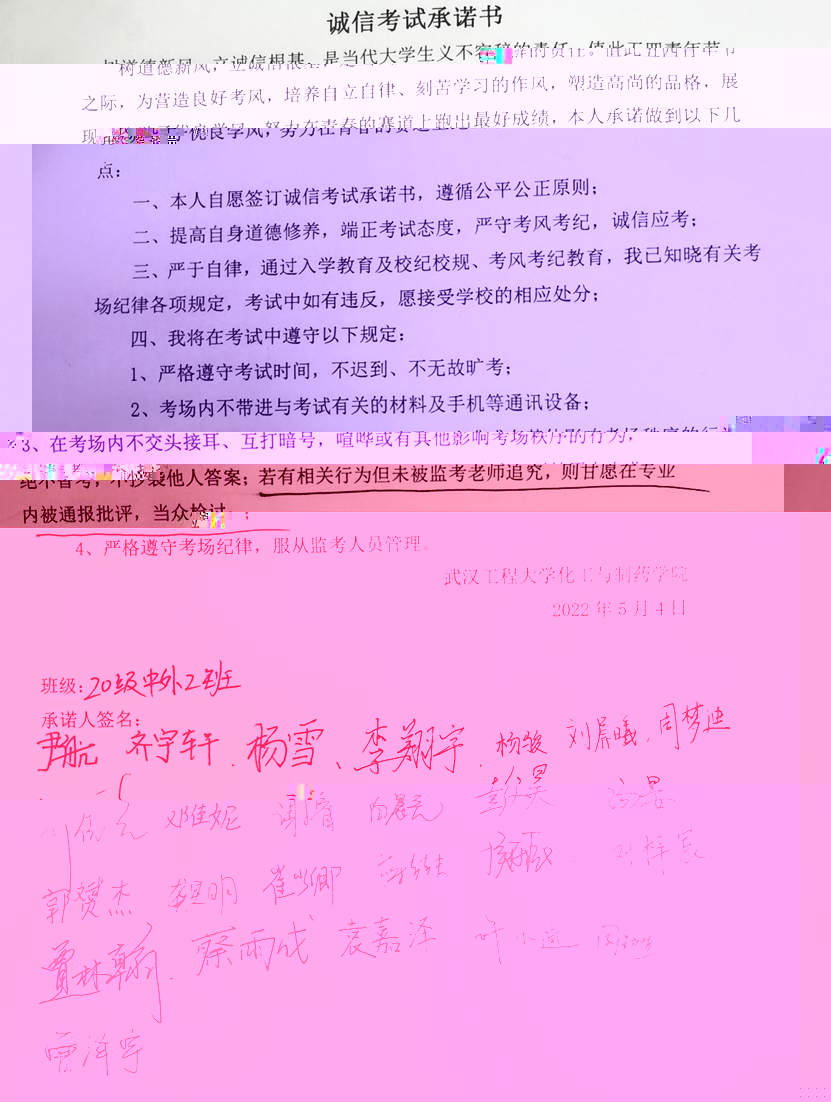 诚信考试承诺书
树道德新风，立诚信根基，是当代大学生义不容辞的责任。值此五四青年节
之际，为营造良好考风，培养自立自律、刻苦学习的作风，塑造高尚的品格，展
现 优良学风，努力在青春的赛道上跑出最好成绩，本人承诺做到以下几
点：
一、本人自愿签订诚信考试承诺书，遵循公平公正原则；
二、提高自身道德修养，端正考试态度，严守考风考纪，诚信应考；
三、严于自律，通过入学教育及校纪校规、考风考纪教育，我已知晓有关考
场纪律各项规定，考试中如有违反，愿接受学校的相应处分；
四、我将在考试中遵守以下规定：
1、严格遵守考试时间，不迟到、不无故旷考；
2、考场内不带进与考试有关的材料及手机等通讯设备；
3、在考场内不交头接耳、互打暗号，喧哗或有其他影响考场秩序的行为，
绝不替考，不抄袭他人答案；若有相关行为但未被监考老师追究，则甘愿在专业
内被通报批评，当众检讨；
4、严格遵守考场纪律，服从监考人员管理。
武汉工程大学化工与制药学院
2022 年 5 月 4 日
班级：20级中外2班
承诺人签名：
尹航 齐宇轩、杨雪、李翔宇、杨骏 刘晨曦、周梦迪
邓佳妮 向晨元 彭文昊
郭赟杰 龚明 崔卿
贾林翰、蔡雨成 袁嘉泽 许小道
曹泽宇